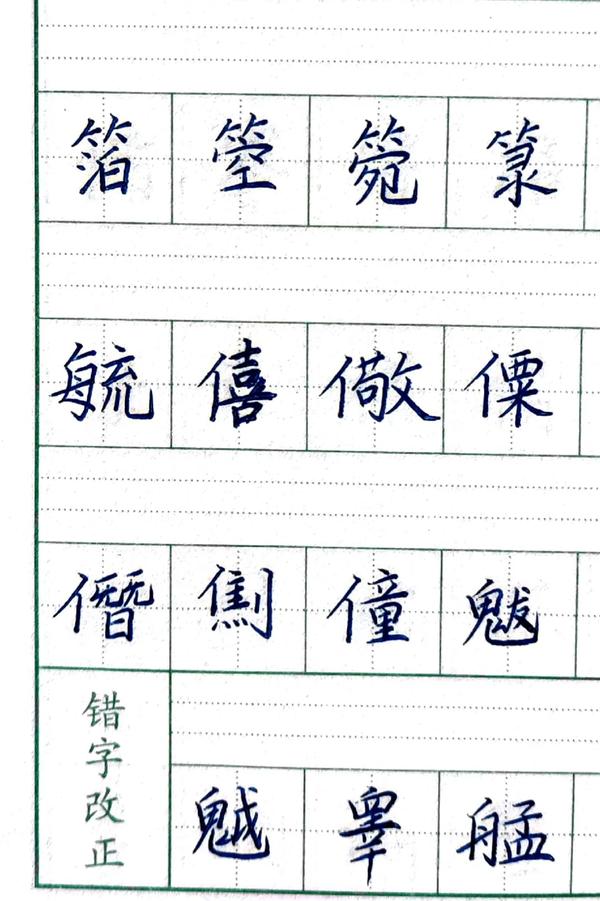 箔箜箢箓
毓僖儆僳
僭劁僮魃
错字改正
魆睾艋